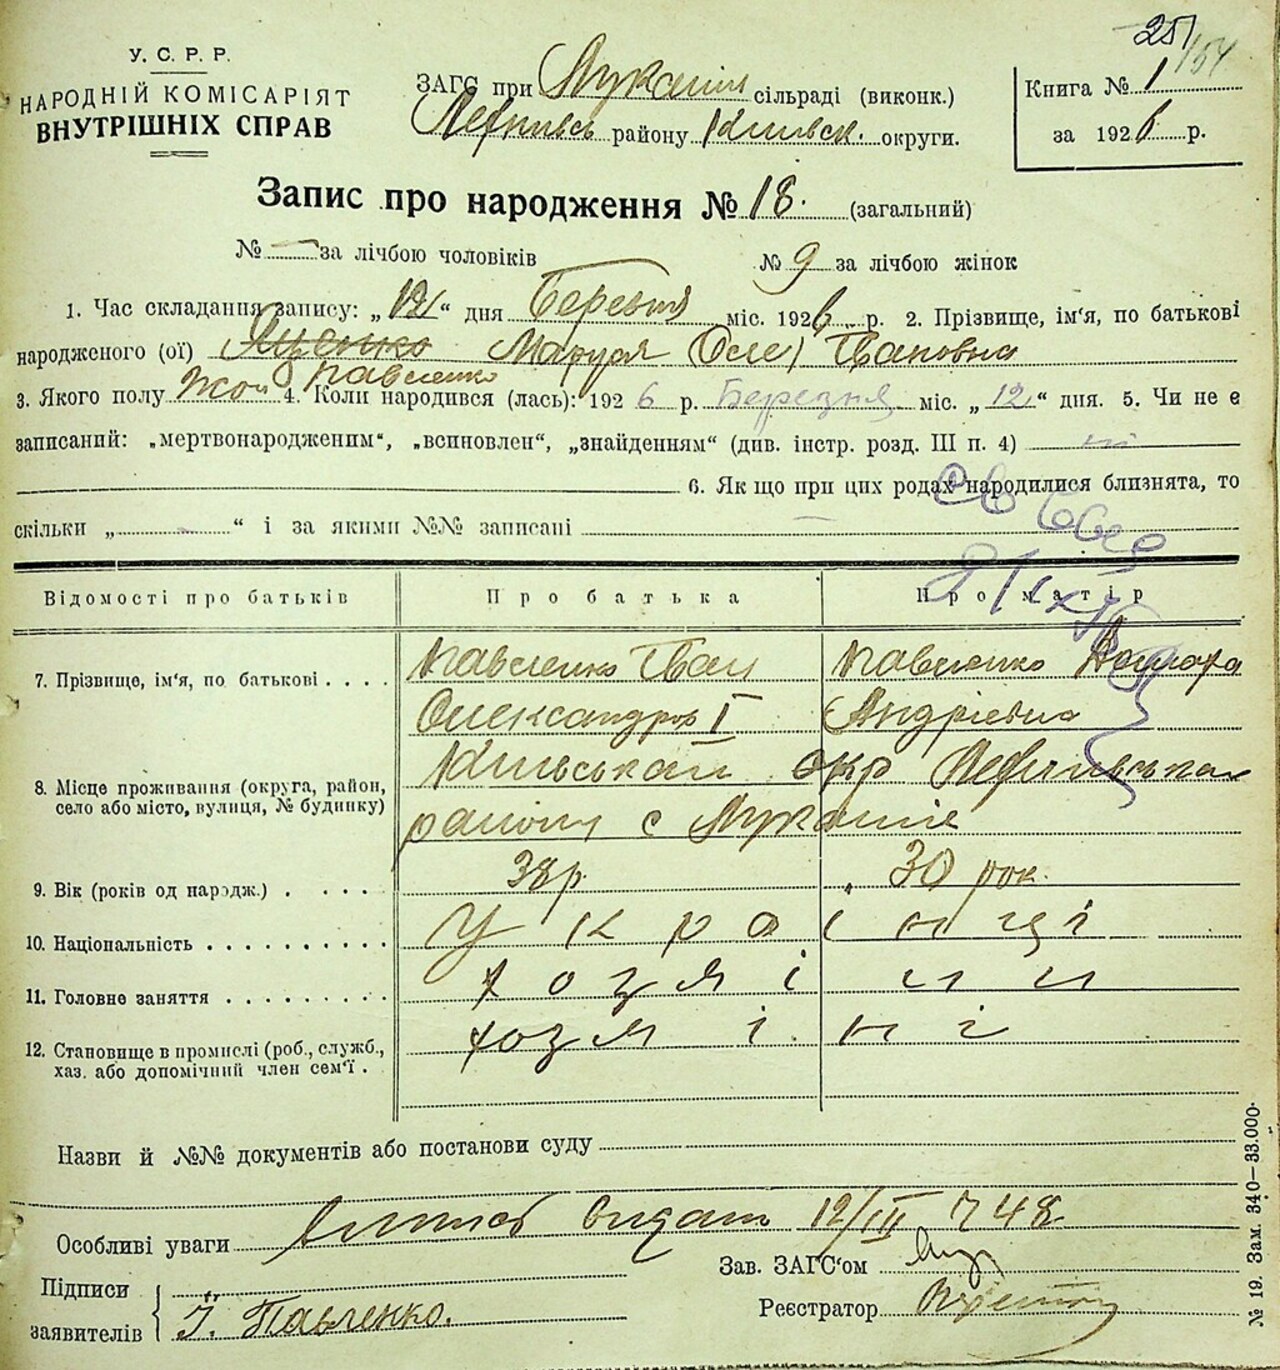 251
154
У. С. Р. Р.
НАРОДНІЙ КОМІСАРІЯТ
ВНУТРІШНІХ СПРАВ
ЗАГС при сільраді (виконк.)
району Київськ. округи.
Книга № 1
за 1926 р.
Запис про народження № 18. (загальний)
№ — за лічбою чоловіків № 9 за лічбою жінок
1. Час складання запису: „12“ дня Березня міс. 1926 р. 2. Прізвище, ім'я, по батькові
народженого (ої) Яценко Маруся Івановна
Павленко
3. Якого полу Жон 4. Коли народився (лась): 1926 р. Березня міс. „12“ дня. 5. Чи не є
записаний: „мертвонародженим“, „всиновлен“, „знайденням“ (див. інстр. розд. III п. 4) ні
6. Як що при цих родах народилися близнята, то
скільки „ — “ і за якими №№ записані —
Відомості про батьків Про батька Про матір
7. Прізвище, ім'я, по батькові . . . . Павленко Іван Павленко
Олександров Андрієвна
8. Місце проживання (округа, район,
село або місто, вулиця, № будинку)
Київської окр
району с
9. Вік (років од народж.) . . . . 38 р. 30 рок.
10. Національність . . . . . . . . . . Українці
11. Головне заняття . . . . . . . . .
12. Становище в промислі (роб., служб.,
хаз. або допомічний член сем'ї .
Назви й №№ документів або постанови суду
Особливі уваги видат 12/III 748
Підписи
заявителів
І. Павленко.
Зав. ЗАГС'ом
Реєстратор
№ 19. Зам. 340—33.000.